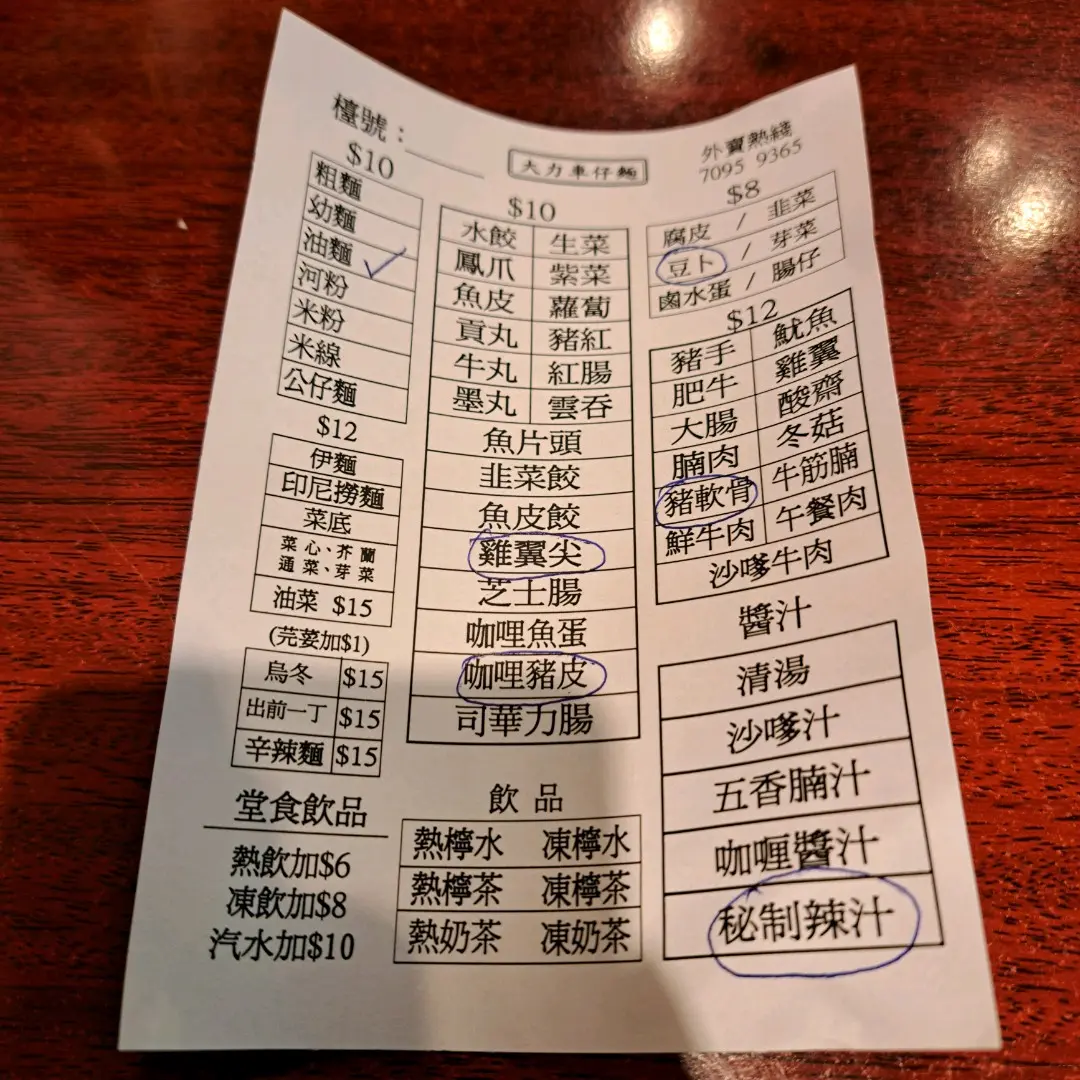 檯號：
大力車仔麵
外賣熱綫
7095 9365
$10
粗麵
幼麵
油麵
河粉
米粉
米線
公仔麵
$12
伊麵
印尼撈麵
菜底
菜心、芥蘭
通菜、芽菜
油菜 $15
(芫荽加$1)
烏冬 $15
出前一丁 $15
辛辣麵 $15
堂食飲品
熱飲加$6
凍飲加$8
汽水加$10
$10
水餃 生菜
鳳爪 紫菜
魚皮 蘿蔔
貢丸 豬紅
牛丸 紅腸
墨丸 雲吞
魚片頭
韭菜餃
魚皮餃
雞翼尖
芝士腸
咖哩魚蛋
咖哩豬皮
司華力腸
飲品
熱檸水 凍檸水
熱檸茶 凍檸茶
熱奶茶 凍奶茶
$8
腐皮 / 韭菜
豆卜 / 芽菜
鹵水蛋 / 腸仔
$12
豬手 魷魚
肥牛 雞翼
大腸 酸齋
腩肉 冬菇
豬軟骨 牛筋腩
鮮牛肉 午餐肉
沙嗲牛肉
醬汁
清湯
沙嗲汁
五香腩汁
咖喱醬汁
秘制辣汁